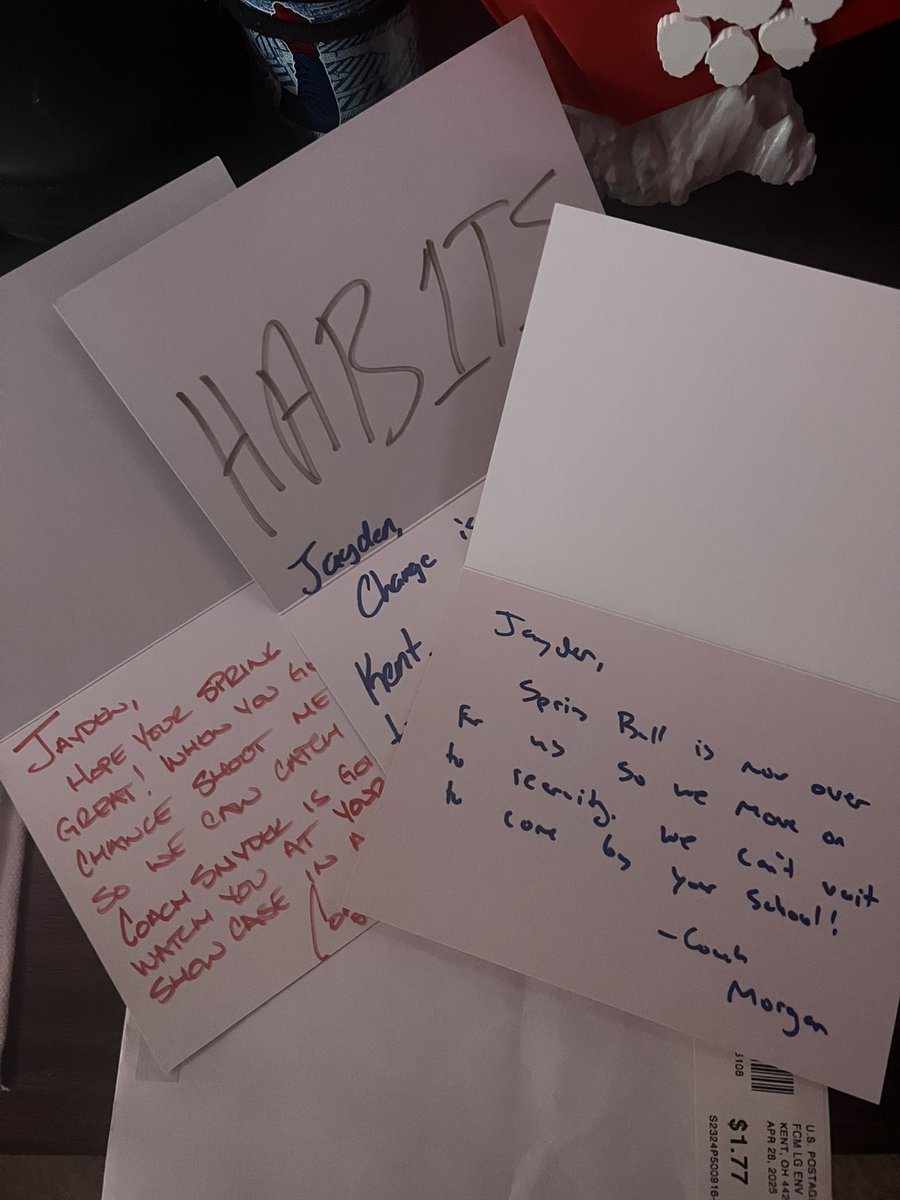 HABITS
Jayden,
Change is
Kent.
JAYDEN,
HOPE YOUR SPRING
GREAT! WHEN YOU
CHANCE SHOOT ME
SO WE CAN CATCH
COACH SNYDER IS
WATCH YOU AT YOUR
SHOW CASE IN A
Jayden,
Spring Ball is now over
for us so we move on
to recruiting. We can't wait
to come by your School!
- Coach
Morgan
U.S. POSTAG
FCM LG ENV
KENT, OH 44
APR 28, 2025
$1.77
S2324P500916-